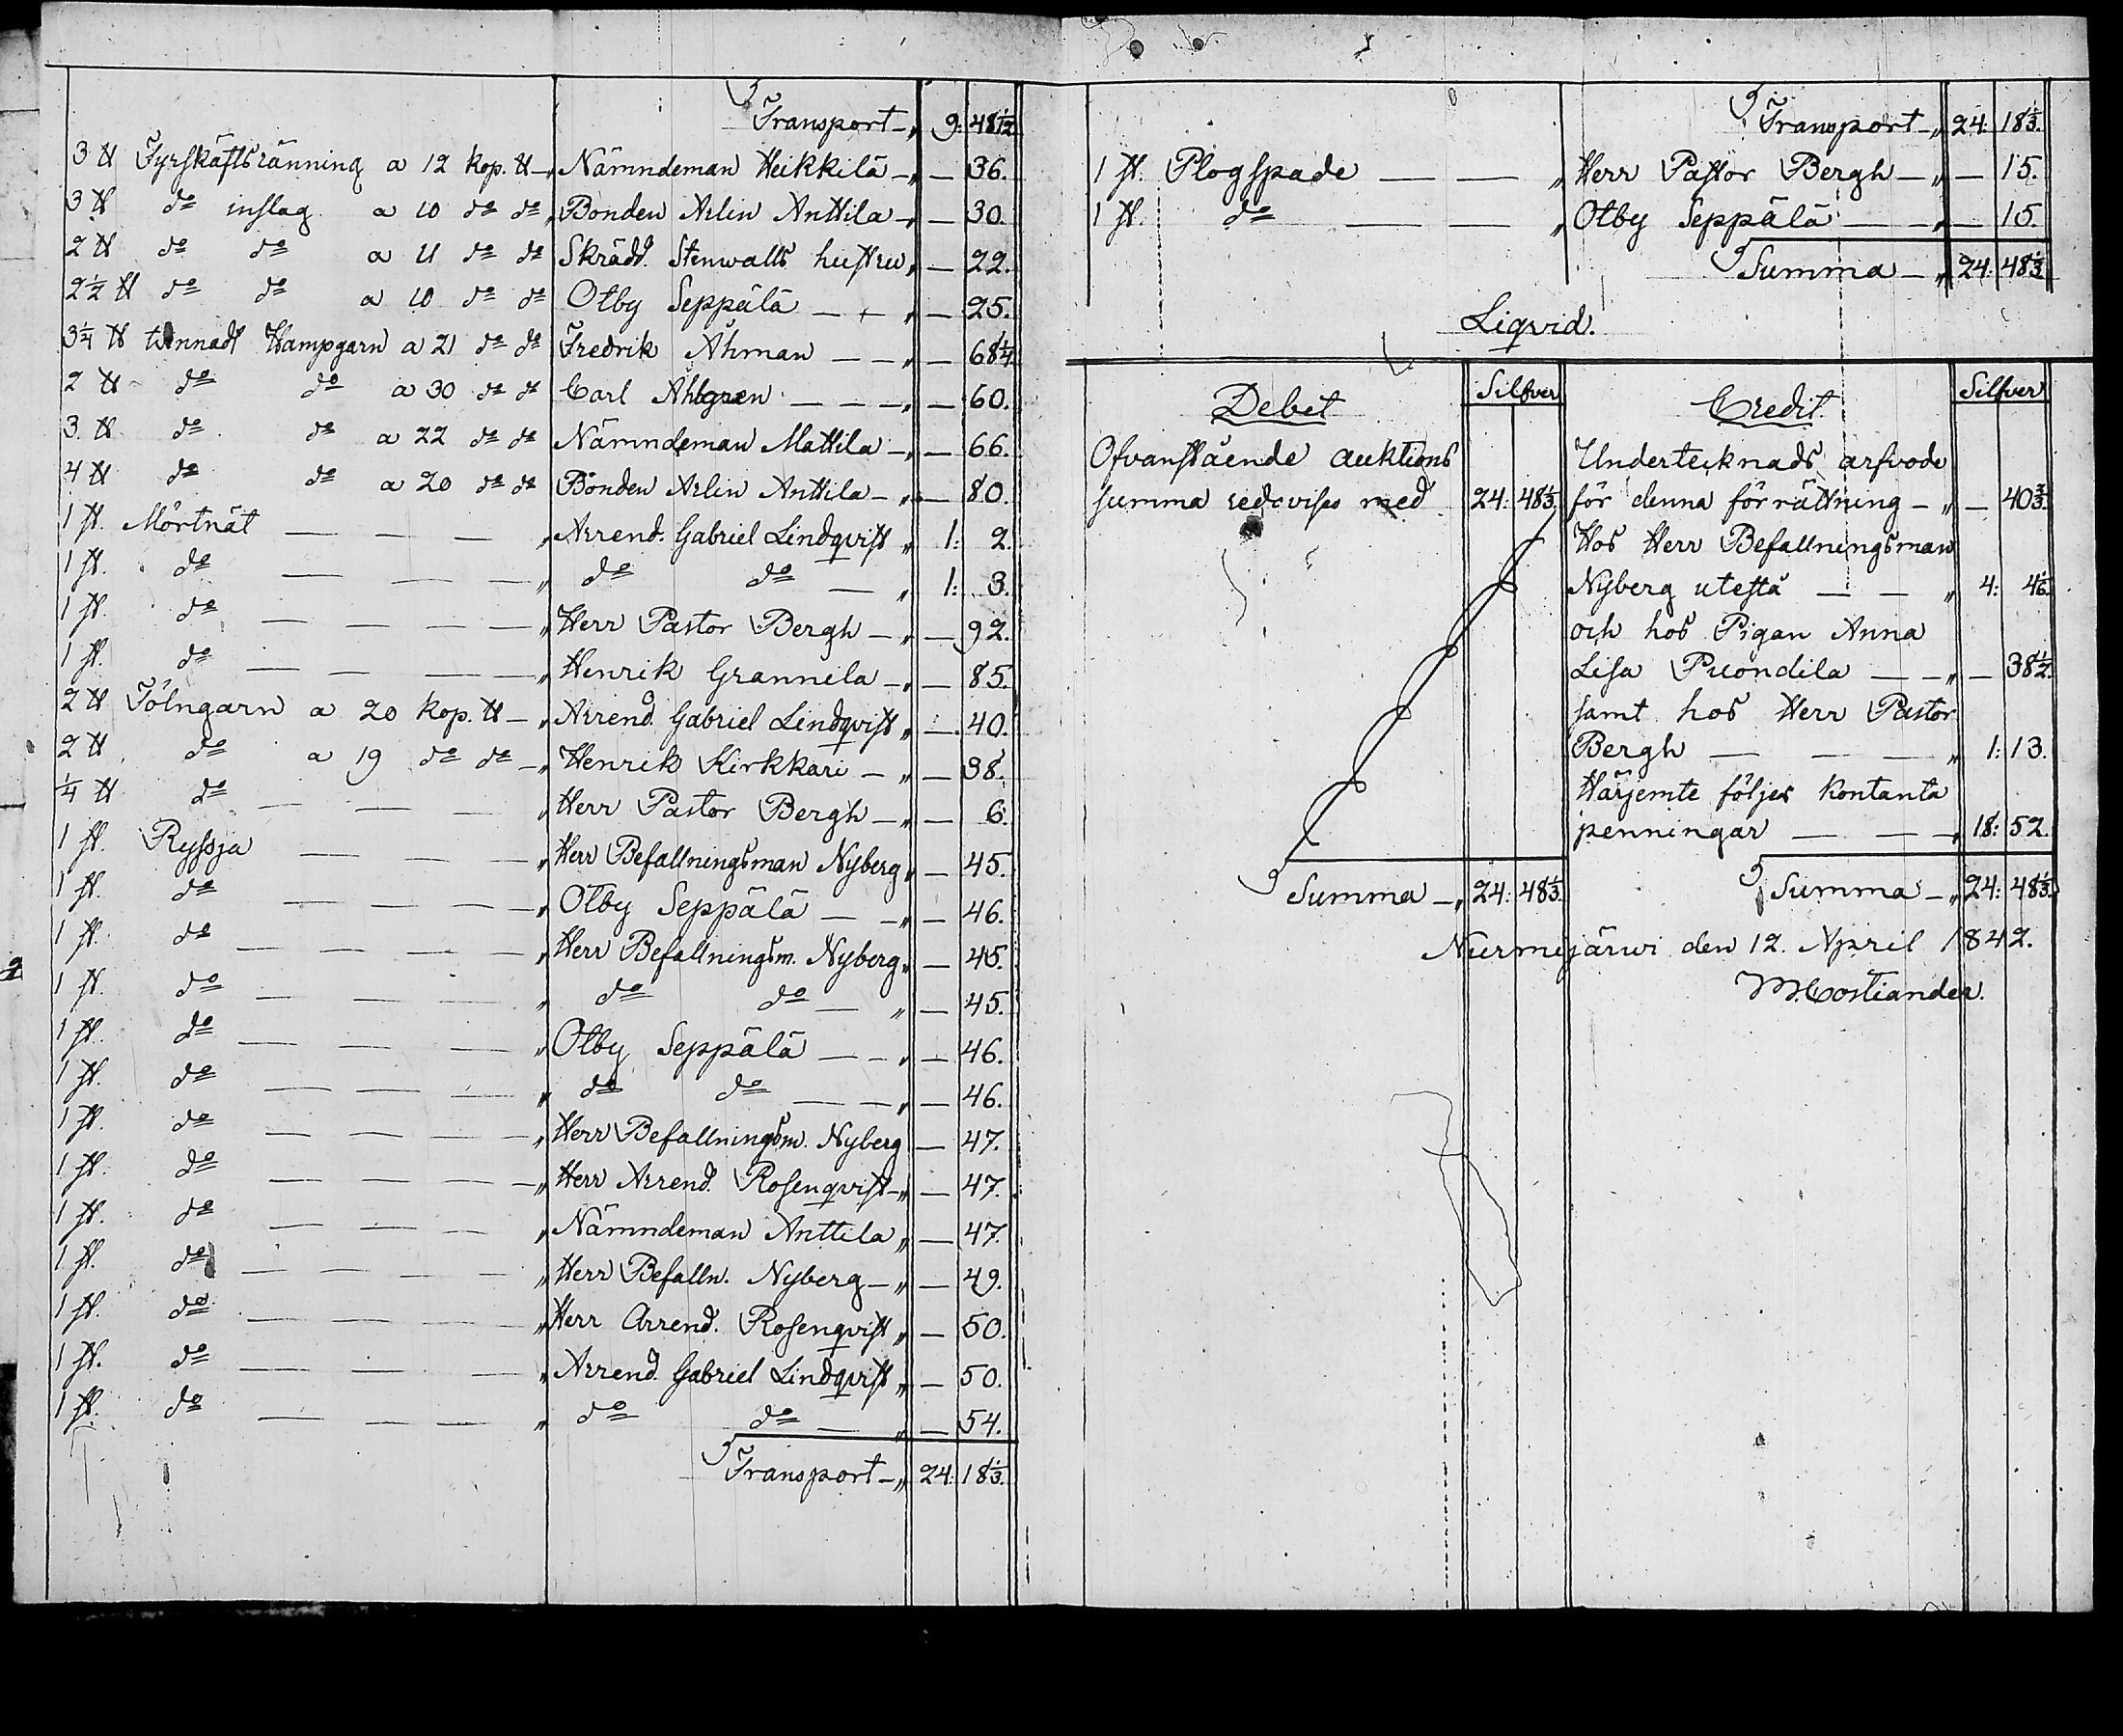 Transport -„ 9: 48 1/12
3 ℔ Fyrskäftsränning a 12 kop. ℔ -„ Nämndeman Heikkilä -„ — 36.
3 ℔ do inslag a 10 do do „ Bonden Arlin Anttila -„ — 30.
2 ℔ do do a 11 do do Skrädd. Stenwalls hustru „ — 22.
2 1/2 ℔ do do a 10 do do Otby Seppälä — „ — 25.
3 1/4 ℔ twinnadt Hampgarn a 21 do do Fredrik Åhman — — „ — 68 1/4.
2 ℔ do do a 30 do do Carl Ahlgren — — — „ — 60.
3 ℔ do do a 22 do do Nämndeman Mattila -„ — 66.
4 ℔ do do a 20 do do Bonden Arlin Anttila -„ — 80.
1 st. Mörtnät — — — „ Arrend. Gabriel Lindqvist „ 1: 2.
1 st. do — — — „ do do — „ 1: 3.
1 st. do — — — — „ Herr Pastor Bergh -„ — 92.
1 st. do — — — — „ Henrik Grannila -„ — 85.
2 ℔ Tölngarn a 20 kop. ℔ -„ Arrend. Gabriel Lindqvist „ — 40.
2 ℔ do a 19 do do -„ Henrik Kirkkari — „ — 38.
1/4 ℔ do — — — „ Herr Pastor Bergh -„ — 6.
1 st. Ryssja — — — „ Herr Befallningsman Nyberg „ — 45.
1 st. do — — — — „ Otby Seppälä — -„ — 46.
1 st. do — — — — „ Herr Befallningsm. Nyberg „ — 45.
1 st. do — — — „ do do — „ — 45.
1 st. do — — — „ Otby Seppälä — — „ — 46.
1 st. do — — — „ do do — — „ — 46.
1 st. do — — — — „ Herr Befallningsm. Nyberg — 47.
1 st. do — — — — „ Herr Arrend. Rosenqvist -„ — 47.
1 st. do — — — — „ Nämndeman Anttila „ — 47.
1 st. do — — — — „ Herr Befalln. Nyberg -„ — 49.
1 st. do — — — — „ Herr Arrend. Rosenqvist „ — 50.
1 st. do — — — „ Arrend. Gabriel Lindqvist „ — 50.
1 st. do — — — „ do do — „ — 54.
Transport -„ 24: 18 1/3.
Transport -„ 24: 18 1/3.
1 st. Plogspade — — „ Herr Pastor Bergh -„ — 15.
1 st. do — — „ Otby Seppälä — -„ — 15.
Summa -„ 24: 48 1/3
Liqvid.
Debet Silfver Credit Silfver
Ofvanstående auktions
summa redovises med 24: 48 1/3.
Summa -„ 24: 48 1/3.
Undertecknads arfvode
för denna förrättning -„ — 40 2/3.
Hos Herr Befallningsman
Nyberg utestå — — „ 4: 4 1/6.
och hos Pigan Anna
Lisa Puondila — -„ — 38 1/2.
samt hos Herr Pastor
Bergh — — — „ 1: 13.
Härjemte följer kontanta
penningar — — „ 18: 52.
Summa -„ 24: 48 1/3.
Nurmijärwi den 12. April 1842.
M. Costiander.